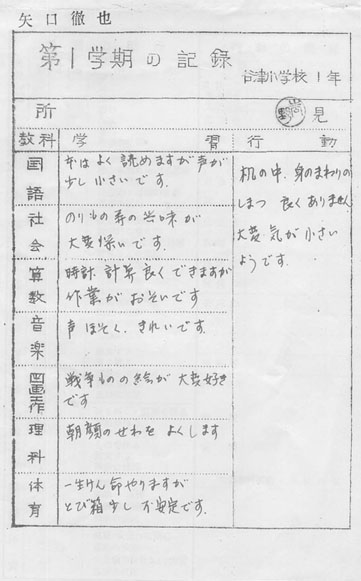 矢口徹也
第1学期の記録
谷津小学校 1年
所 見
教科 学 習 行 動
国語
本はよく読めますが声が
少し小さいです。
社会
のりもの等の興味が
大変深いです。
算数
時計、計算良くできますが
作業がおそいです
音楽
声ほそく、きれいです。
図画工作
戦争ものの絵が大変好き
です
理科
朝顔のせわをよくします
体育
一生けん命やりますが
とび箱少し不安定です。
机の中、身のまわりの
しまつ良くありません
大変気が小さい
ようです。